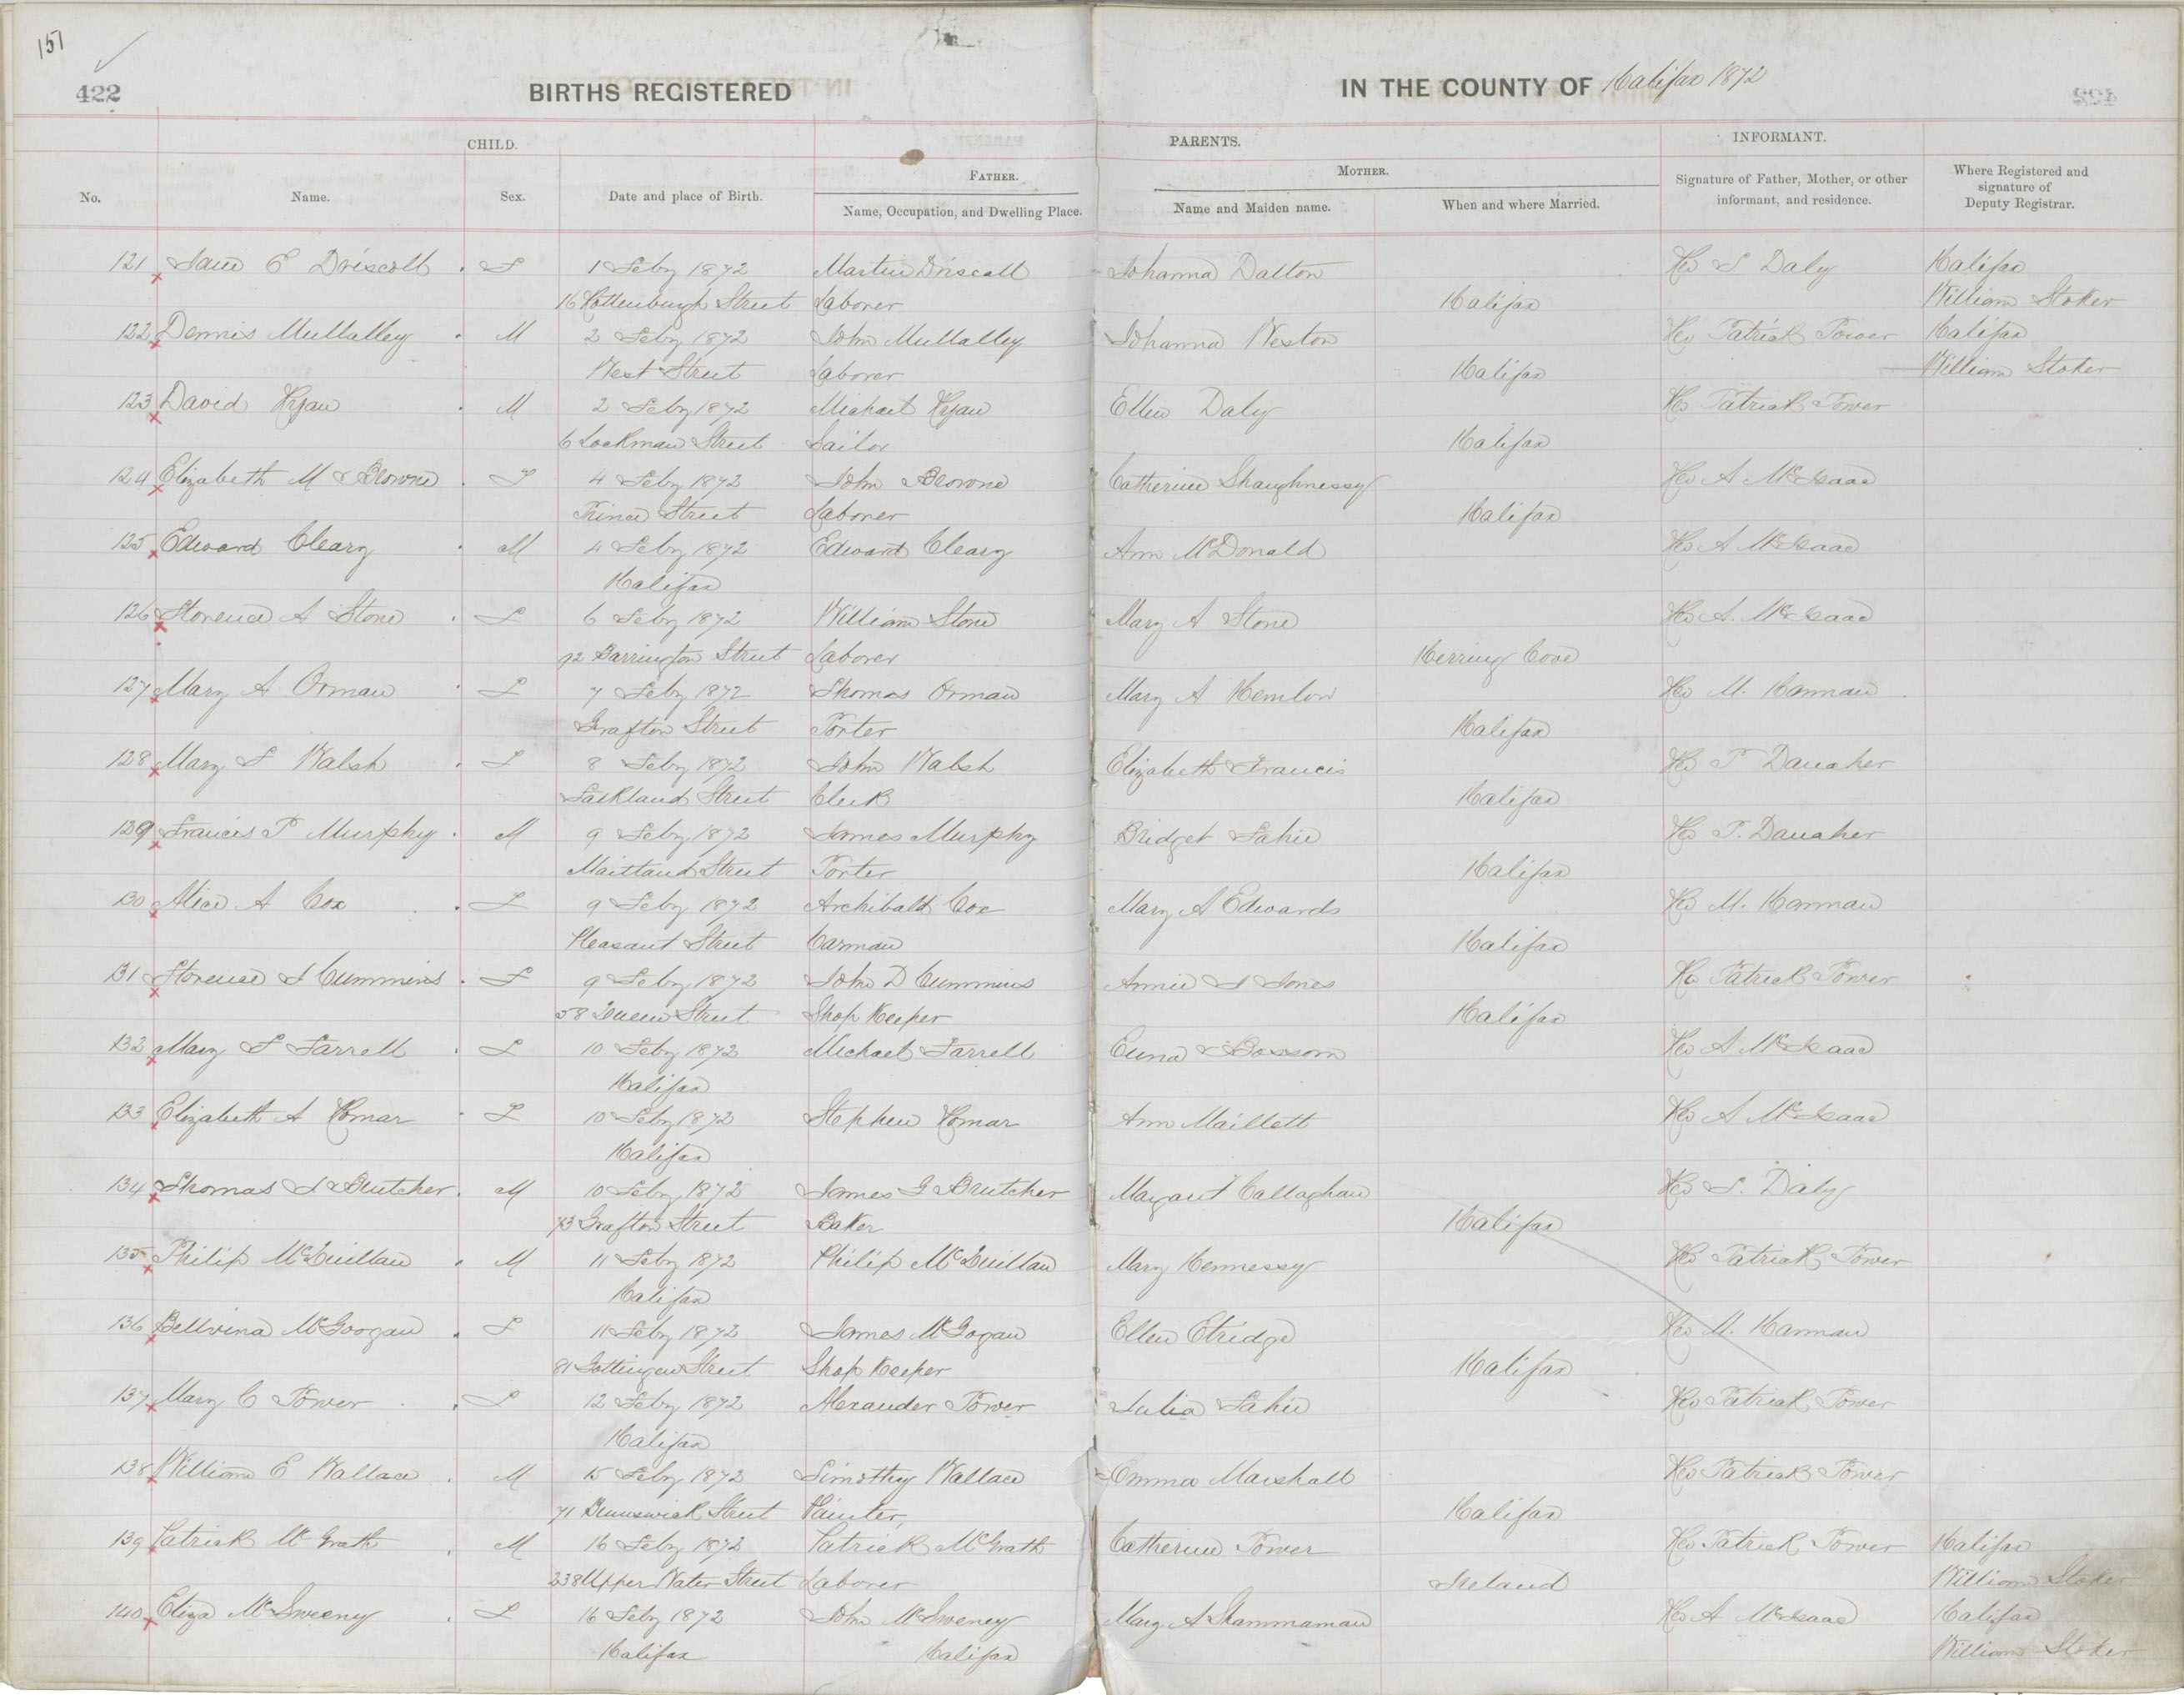 151
422
BIRTHS REGISTERED IN THE COUNTY OF Halifax 1872
CHILD. PARENTS. INFORMANT.
FATHER. MOTHER.
No. Name. Sex. Date and place of Birth. Name, Occupation, and Dwelling Place. Name and Maiden name. When and where Married. Signature of Father, Mother, or other informant, and residence. Where Registered and signature of Deputy Registrar.
121 Jane E Driscoll F 1 Feby 1872 Martin Driscoll Johanna Dalton Rev J Daly Halifax
16 Street Laborer Halifax William Stoker
122 Dennis Mullalley M 2 Feby 1872 John Mullalley Johanna Weston Rev Patrick Power Halifax
West Street Laborer Halifax William Stoker
123 David Ryan M 2 Feby 1872 Michael Ryan Ellen Daly Rev Patrick Power
6 Lockman Street Sailor Halifax
124 Elizabeth M Browne F 4 Feby 1872 John Browne Catherine Shaughnessy Rev A McIsaac
Prince Street Laborer Halifax
125 Edward Cleary M 4 Feby 1872 Edward Cleary Ann McDonald Rev A McIsaac
Halifax
126 Florence A Stone F 6 Feby 1872 William Stone Mary A Stone Rev A. McIsaac
92 Barrington Street Laborer Herring Cove
127 Mary A Orman F 7 Feby 1872 Thomas Orman Mary A Hemlow Rev M. Hannan
Grafton Street Porter Halifax
128 Mary F Walsh F 8 Feby 1872 John Walsh Elizabeth Francis Rev P Danaher
Falkland Street Clerk Halifax
129 Francis P Murphy M 9 Feby 1872 James Murphy Bridget Fahie Rev P. Danaher
Maitland Street Porter Halifax
130 Alice A Cox F 9 Feby 1872 Archibald Cox Mary A Edwards Rev M. Hannan
Pleasant Street Carman Halifax
131 Florence J Cummins F 9 Feby 1872 John D Cummins Annie J Jones Rev Patrick Power
58 Queen Street Shop Keeper Halifax
132 Mary F Farrell F 10 Feby 1872 Michael Farrell Bossom Rev A McIsaac
Halifax
133 Elizabeth A Romar F 10 Feby 1872 Stephen Romar Ann Maillett Rev A McIsaac
Halifax
134 Thomas J Brutcher M 10 Feby 1872 James G Brutcher Margaret Callaghan Rev J. Daly
73 Grafton Street Baker Halifax
135 Philip McQuillan M 11 Feby 1872 Philip McQuillan Mary Hennessy Rev Patrick Power
Halifax
136 Bellvina McGoogan F 11 Feby 1872 James McGogan Ellen Etridge Rev M. Hannan
81 Gottingen Street Shop Keeper Halifax
137 Mary C Power F 12 Feby 1872 Alexander Power Julia Fahie Rev Patrick Power
Halifax
138 William E Wallace M 15 Feby 1872 Timothy Wallace Emma Marshall Rev Patrick Power
71 Brunswick Street Painter, Halifax
139 Patrick McGrath M 16 Feby 1872 Patrick McGrath Catherine Power Rev Patrick Power Halifax
238 Upper Water Street Laborer Ireland William Stoker
140 Eliza McSweeny F 16 Feby 1872 John McSweney Mary A Rev A McIsaac Halifax
Halifax Halifax William Stoker